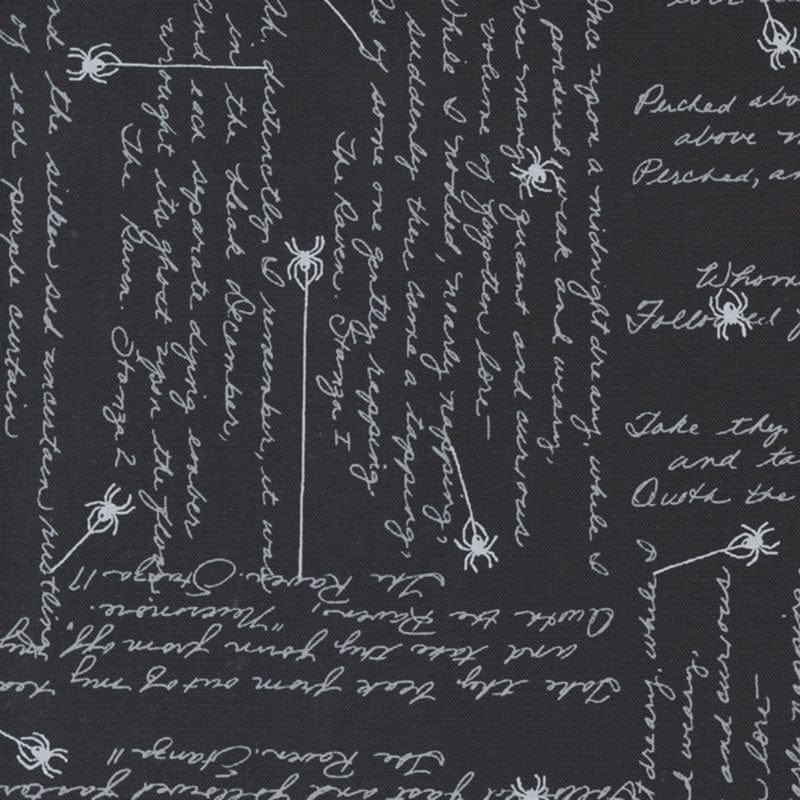 Once upon a midnight dreary, while I
pondered weak and weary,
Over many a quaint and curious
volume of forgotten lore—
While I nodded, nearly napping,
suddenly there came a tapping,
As of some one gently rapping
The Raven. Stanza I
Ah, distinctly I remember, it was
in the bleak December,
And each separate dying ember
wrought its ghost upon the floor
The Raven. Stanza 2
And the silken sad uncertain rustling
of each purple curtain
Perched abo
above m
Perched, an
Whom
Followed f
Take thy
and ta
Quoth the
Take thy beak from out of my hea
and take thy form off
Quoth the Raven, "Nevermore."
The Raven. Stanza 17
Followed fast and followed faster
The Raven. Stanza 11
dreary, while I
weary,
and curious
lore—